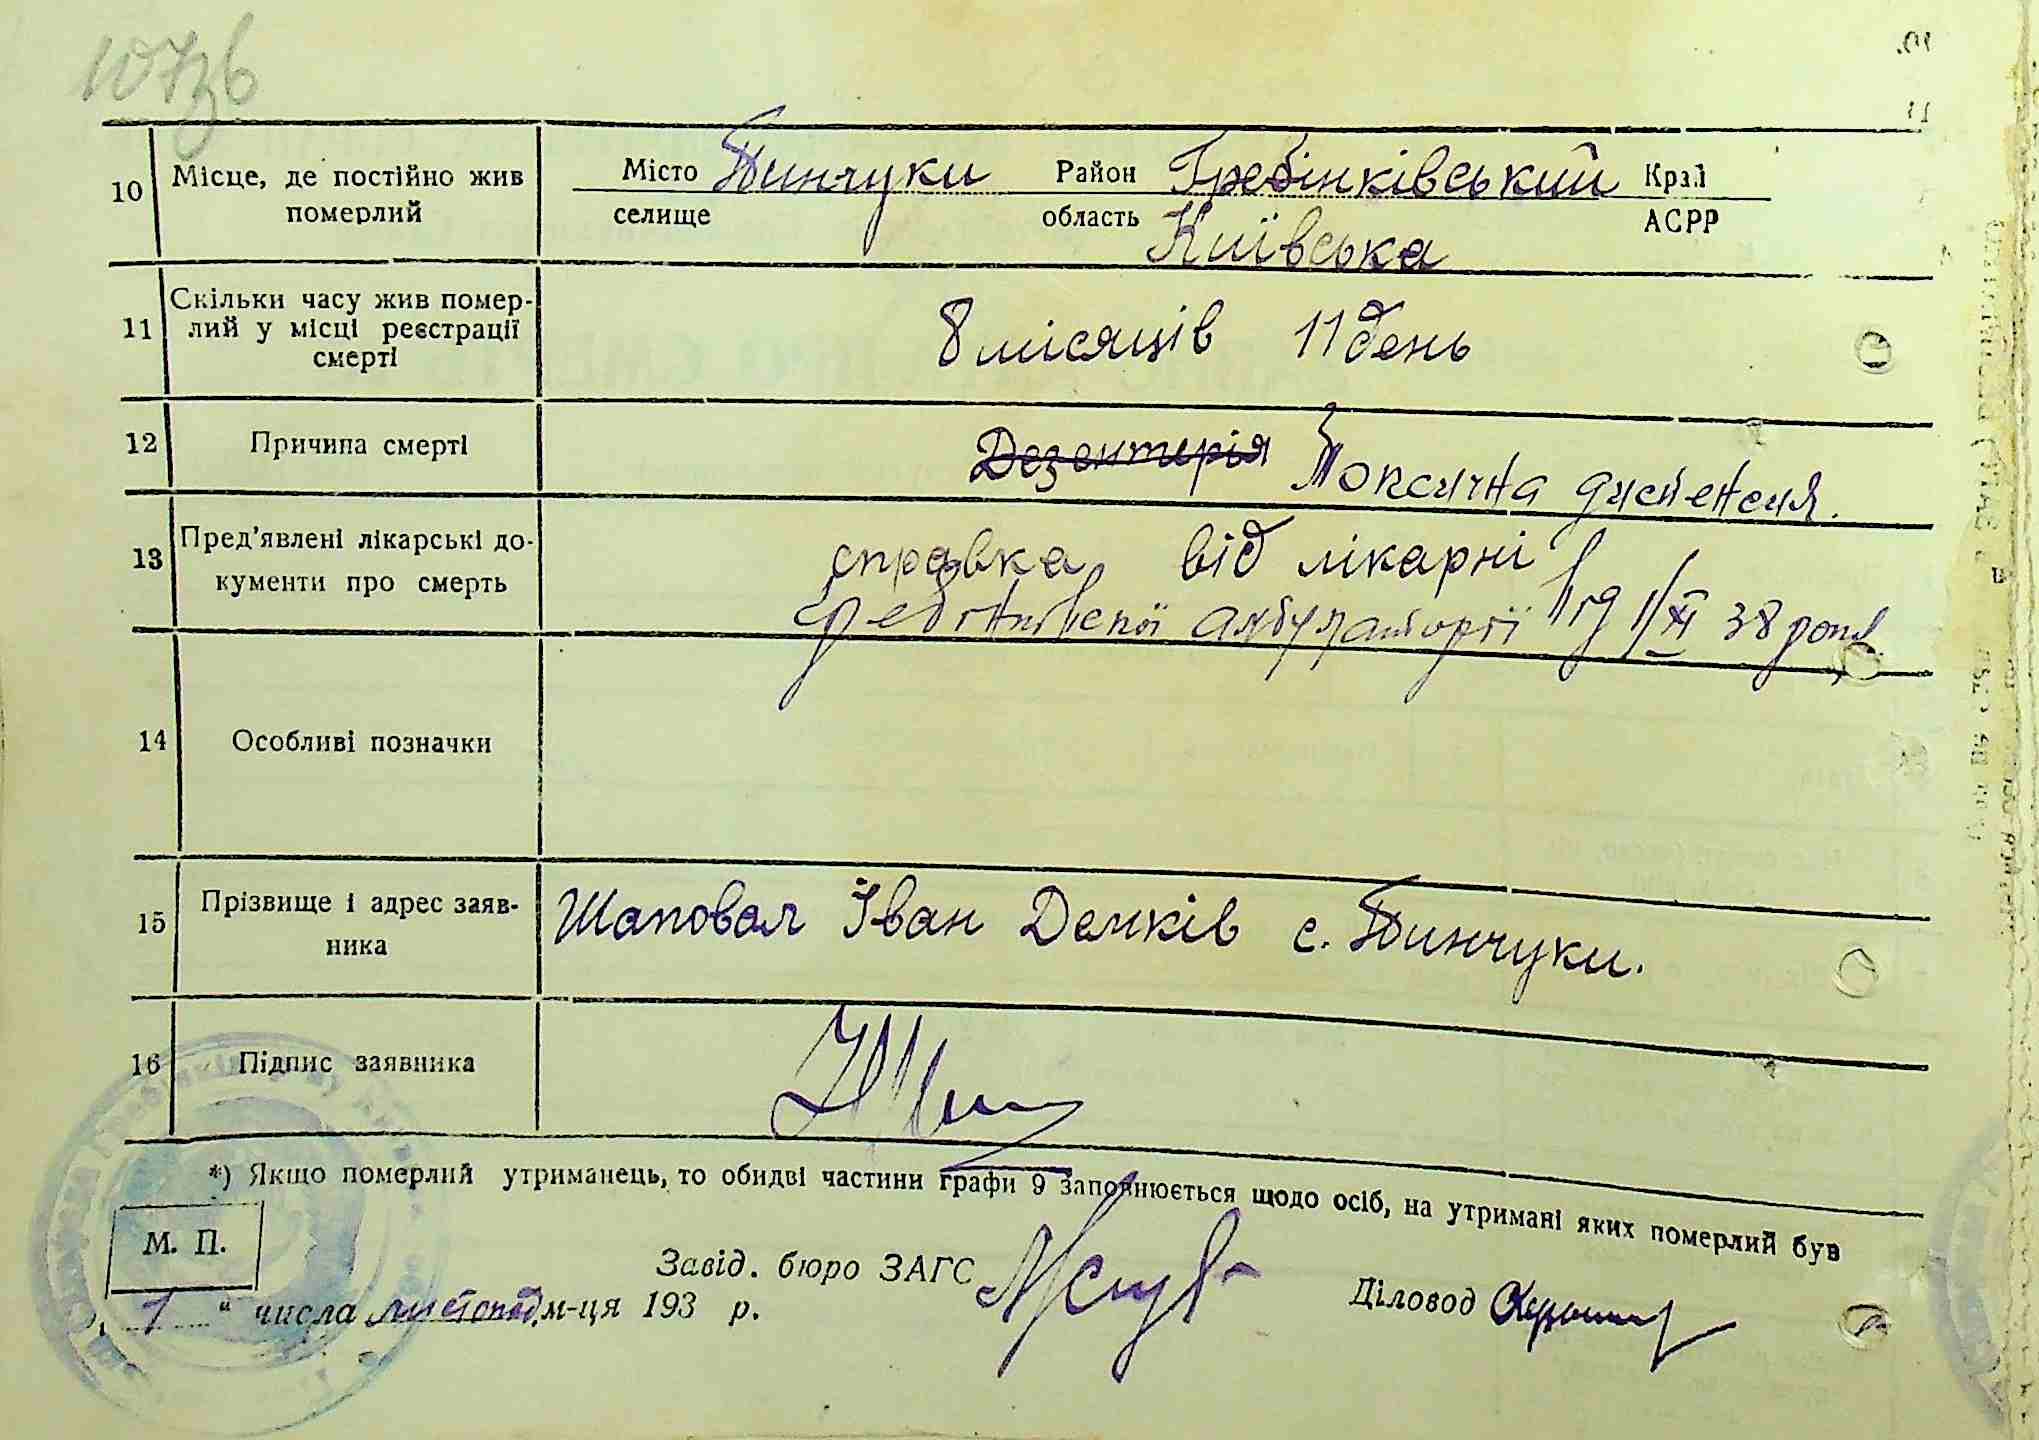 107зв
10 Місце, де постійно жив померлий
Місто Пинчуки Район Гребінківський Край
селище область Київська АСРР
11 Скільки часу жив помер-
лий у місці реєстрації
смерті
8 місяців 11 день
12 Причина смерті
Дезентерія Токсична диспенсия.
13 Пред'явлені лікарські до-
кументи про смерть
справка від лікарні
Гребінківської амбулаторії від 1/XI 38 рока
14 Особливі позначки
15 Прізвище і адрес заяв-
ника
Шаповал Іван Демків с. Пинчуки.
16 Підпис заявника
*) Якщо померлий утриманець, то обидві частини графи 9 заповнюється щодо осіб, на утримані яких померлий був
М. П.
Завід. бюро ЗАГС
Діловод
„ 1 “ числа листопад м-ця 193 р.